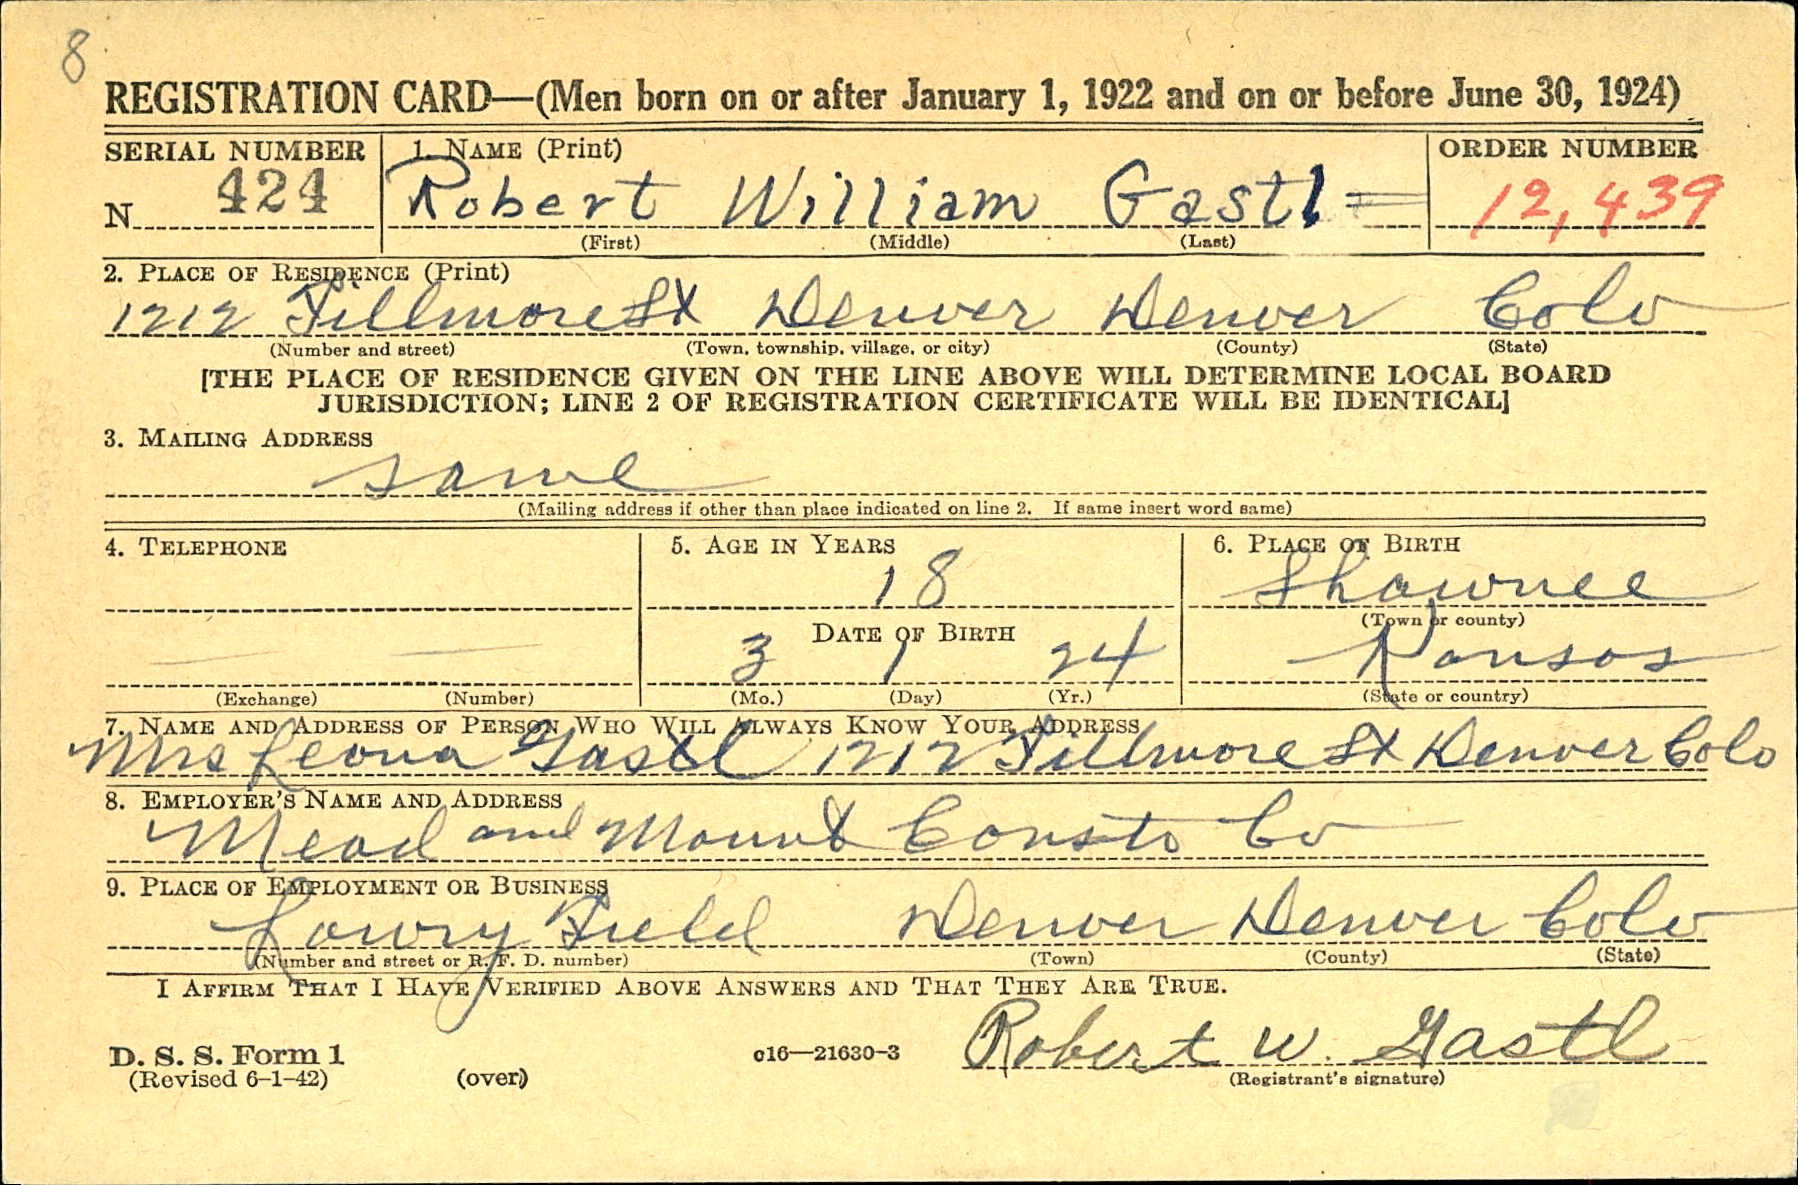 8
REGISTRATION CARD—(Men born on or after January 1, 1922 and on or before June 30, 1924)
SERIAL NUMBER 1. NAME (Print) ORDER NUMBER
N 424 Robert William Gastl 12,439
(First) (Middle) (Last)
2. PLACE OF RESIDENCE (Print)
1212 Fillmore St Denver Denver Colo
(Number and street) (Town, township, village, or city) (County) (State)
[THE PLACE OF RESIDENCE GIVEN ON THE LINE ABOVE WILL DETERMINE LOCAL BOARD
JURISDICTION; LINE 2 OF REGISTRATION CERTIFICATE WILL BE IDENTICAL]
3. MAILING ADDRESS
same
(Mailing address if other than place indicated on line 2. If same insert word same)
4. TELEPHONE 5. AGE IN YEARS 6. PLACE OF BIRTH
18 Shawnee
(Town or county)
DATE OF BIRTH
3 1 24 Kansas
(Exchange) (Number) (Mo.) (Day) (Yr.) (State or country)
7. NAME AND ADDRESS OF PERSON WHO WILL ALWAYS KNOW YOUR ADDRESS
Mrs Leona Gastl 1212 Fillmore St Denver Colo
8. EMPLOYER'S NAME AND ADDRESS
Mead and Mount Consto Co
9. PLACE OF EMPLOYMENT OR BUSINESS
Lowry Field Denver Denver Colo
(Number and street or R. F. D. number) (Town) (County) (State)
I AFFIRM THAT I HAVE VERIFIED ABOVE ANSWERS AND THAT THEY ARE TRUE.
D. S. S. Form 1 c16—21630-3 Robert W. Gastl
(Revised 6-1-42) (over) (Registrant's signature)